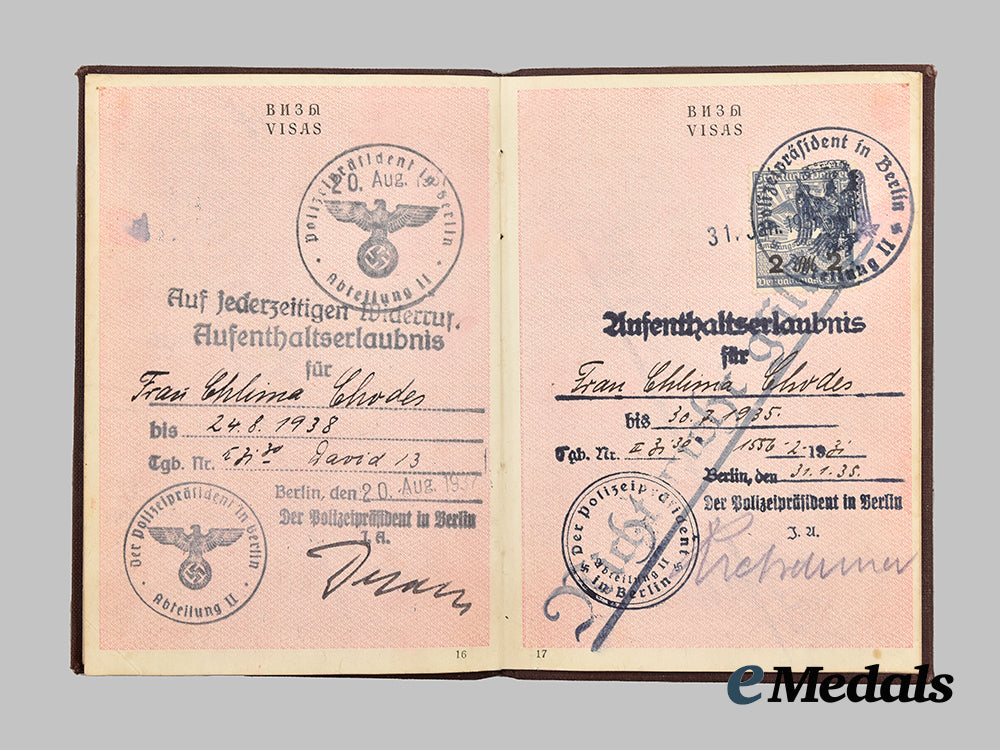 ВИЗЫ
VISAS
Polizeipräsident in Berlin
20. Aug. 193
Abteilung II
Auf jederzeitigen Widerruf.
Aufenthaltserlaubnis
für
Frau Chlima Chodes
bis 24.8.1938
Tgb. Nr. David 13
Berlin, den 20. Aug. 1937
Der Polizeipräsident in Berlin
I.A.
Der Polizeipräsident in Berlin
Abteilung II
16
ВИЗЫ
VISAS
Polizeipräsident in Berlin
31. Jan. 19
2 2
Abteilung II
Aufenthaltserlaubnis
für
Frau Chlima Chodes
bis 30.7.1935.
Tgb. Nr. 1550-2-19
Berlin, den 31.1.35.
Der Polizeipräsident in Berlin
J. A.
Der Polizeipräsident
Abteilung II
in Berlin
Nicht mehr gültig
17
eMedals